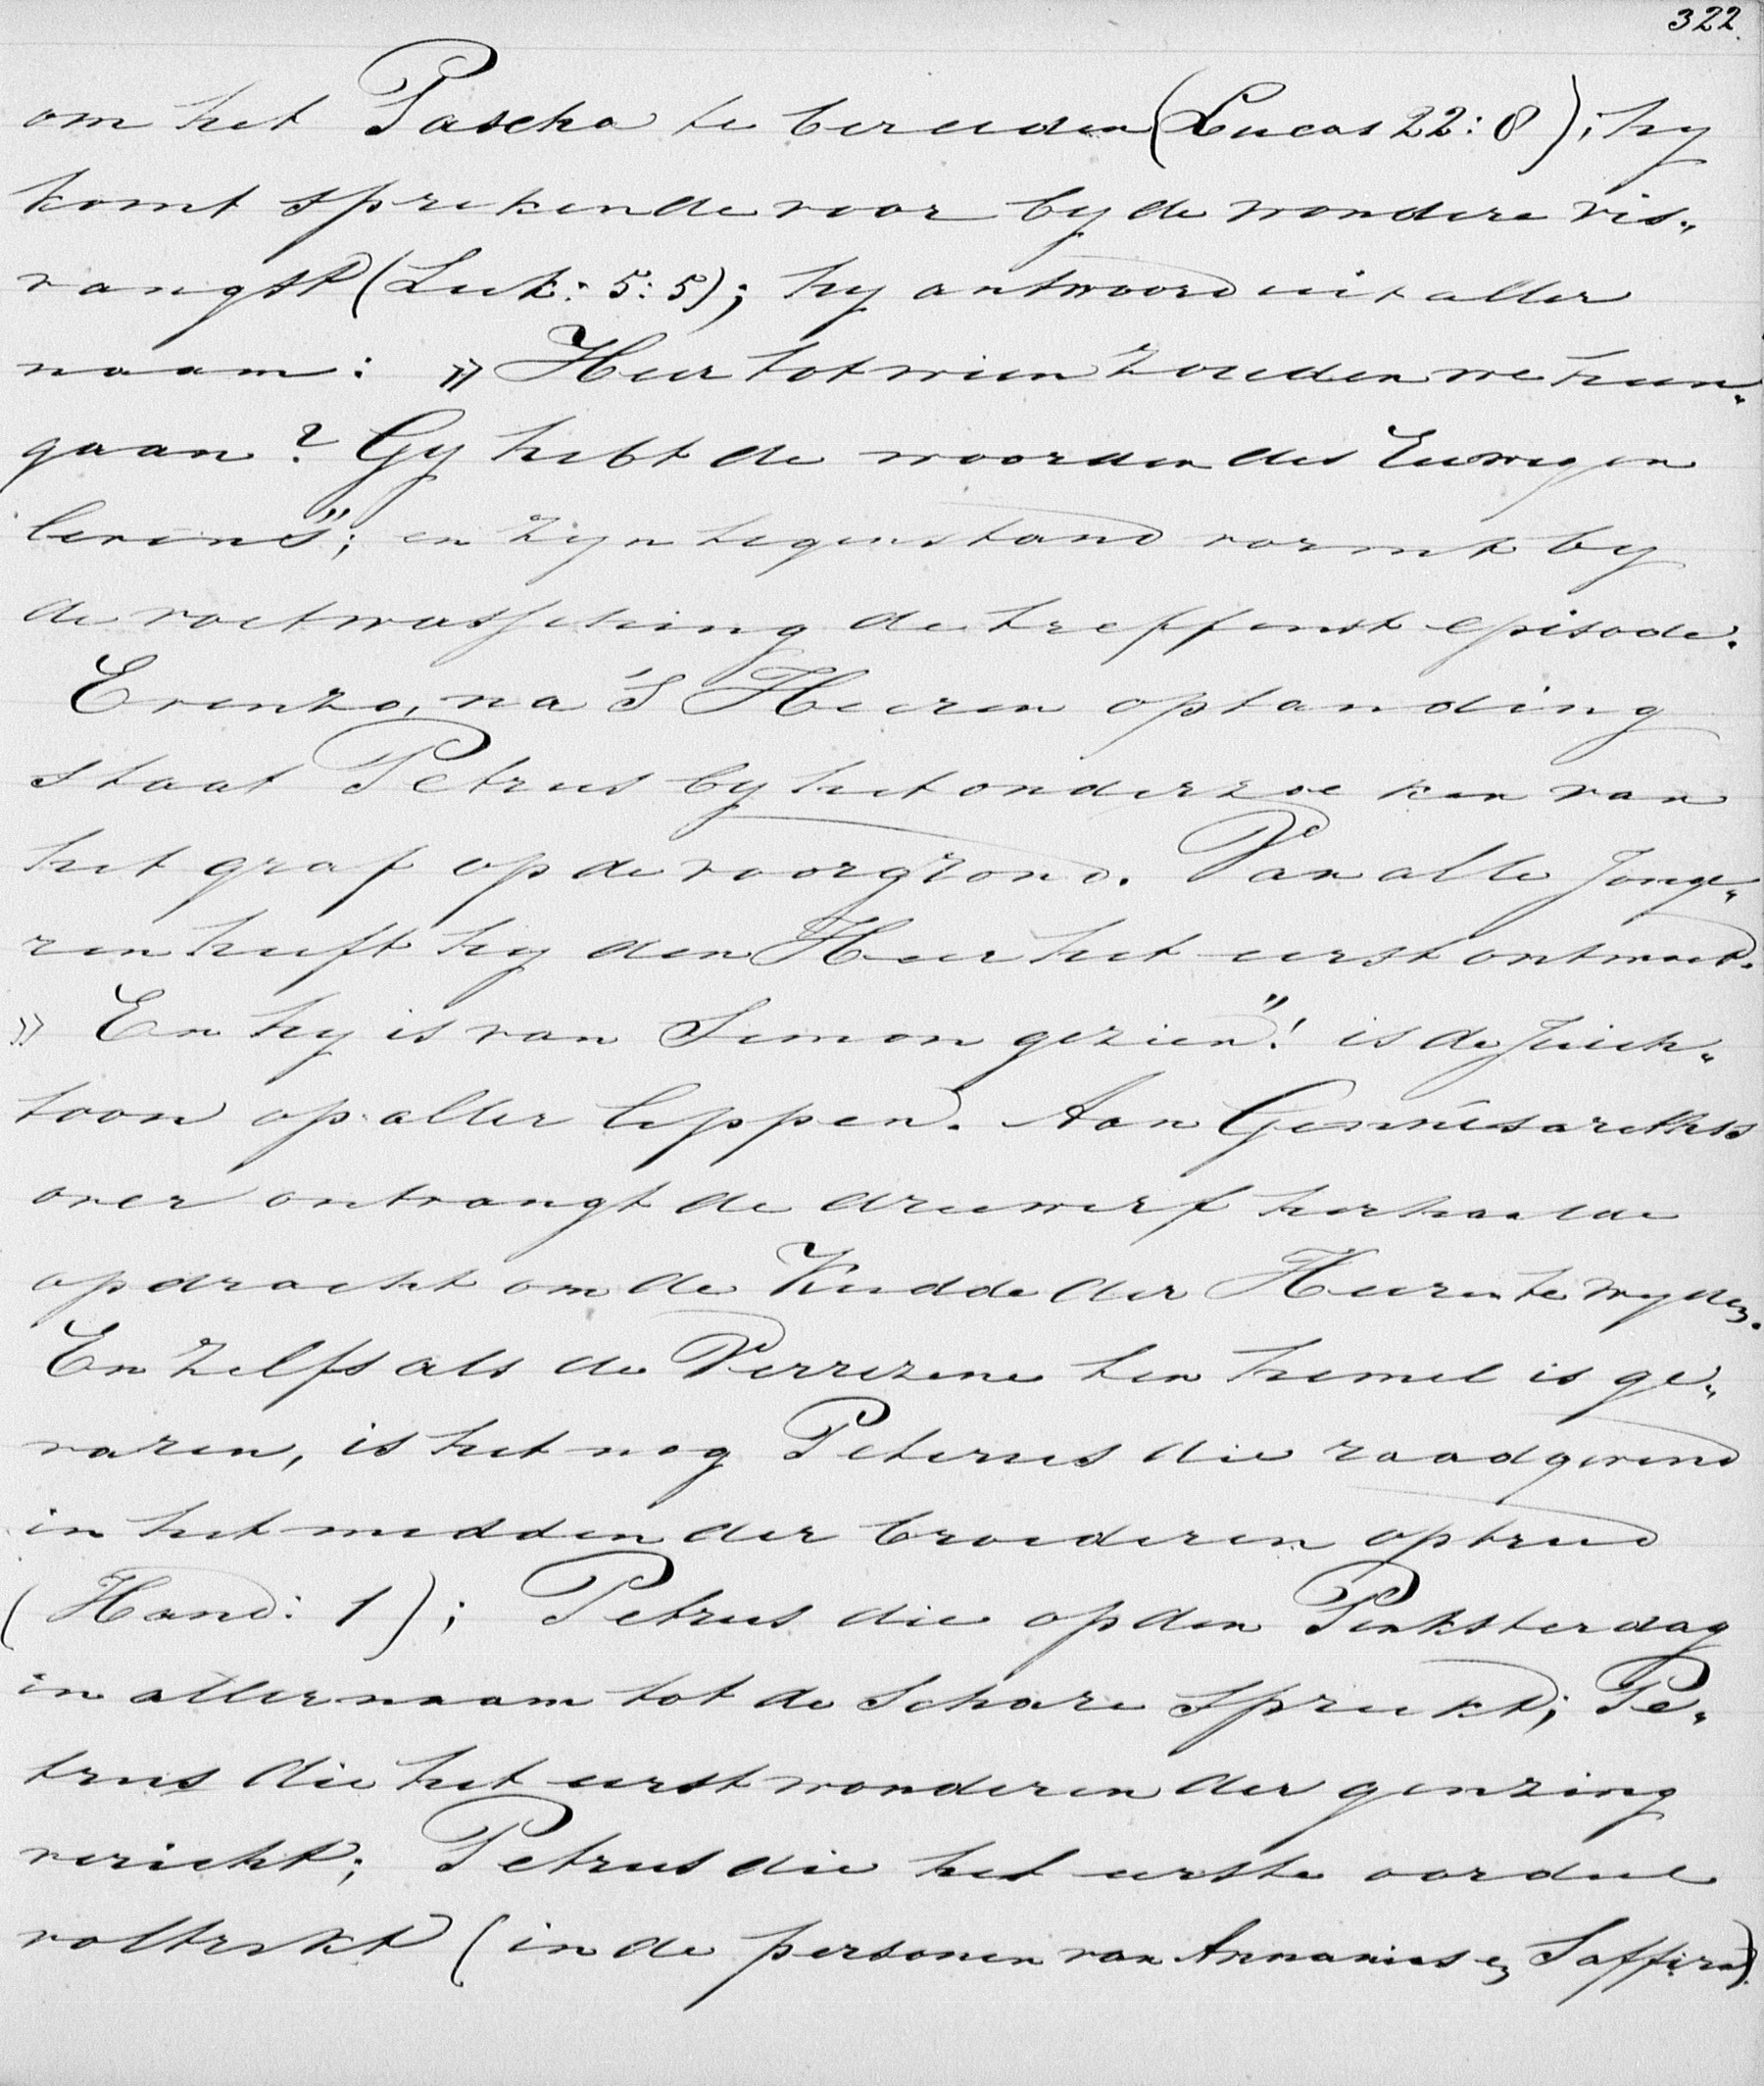 322.
om het Pascha te bereiden (Lucas 22:8); hy
komt sprekende voor by de wondere vis„
vangst (Luk: 5:5); hy antwoord uit aller
naam: » Heer tot wien zouden we heen„
gaan? Gy hebt de woorden des Eeuwigen
levens"; en zyn tegenstand vormt by
de voetwassching de treffenst episode.
Evenzo, na 's Heeren opstanding
staat Petrus by het onderzoeken van
het graf op de voorgrond. Van alle Jong„
ren heeft hy den Heer het eerst ontmoet.
» En hy is van Simon gezien"! is de Juich„
toon op aller lippen. Aan Gennésareths
over ontvangt de driewerf herhaalde
opdracht om de Kudde der Heeren te wyden.
En zelfs als de Verrezene ten hemel is ge„
varen, is het nog Peterus die raadgevend
in het midden der broederen optreed
(Hand: 1); Petrus die op den Pinksterdag
in aller naam tot de Schare spreekt; Pe„
trus die het eerst wonderen der genezing
vericht; Petrus die het eerste oordeel
voltrekt (in de personen van Annanias en Saffira).